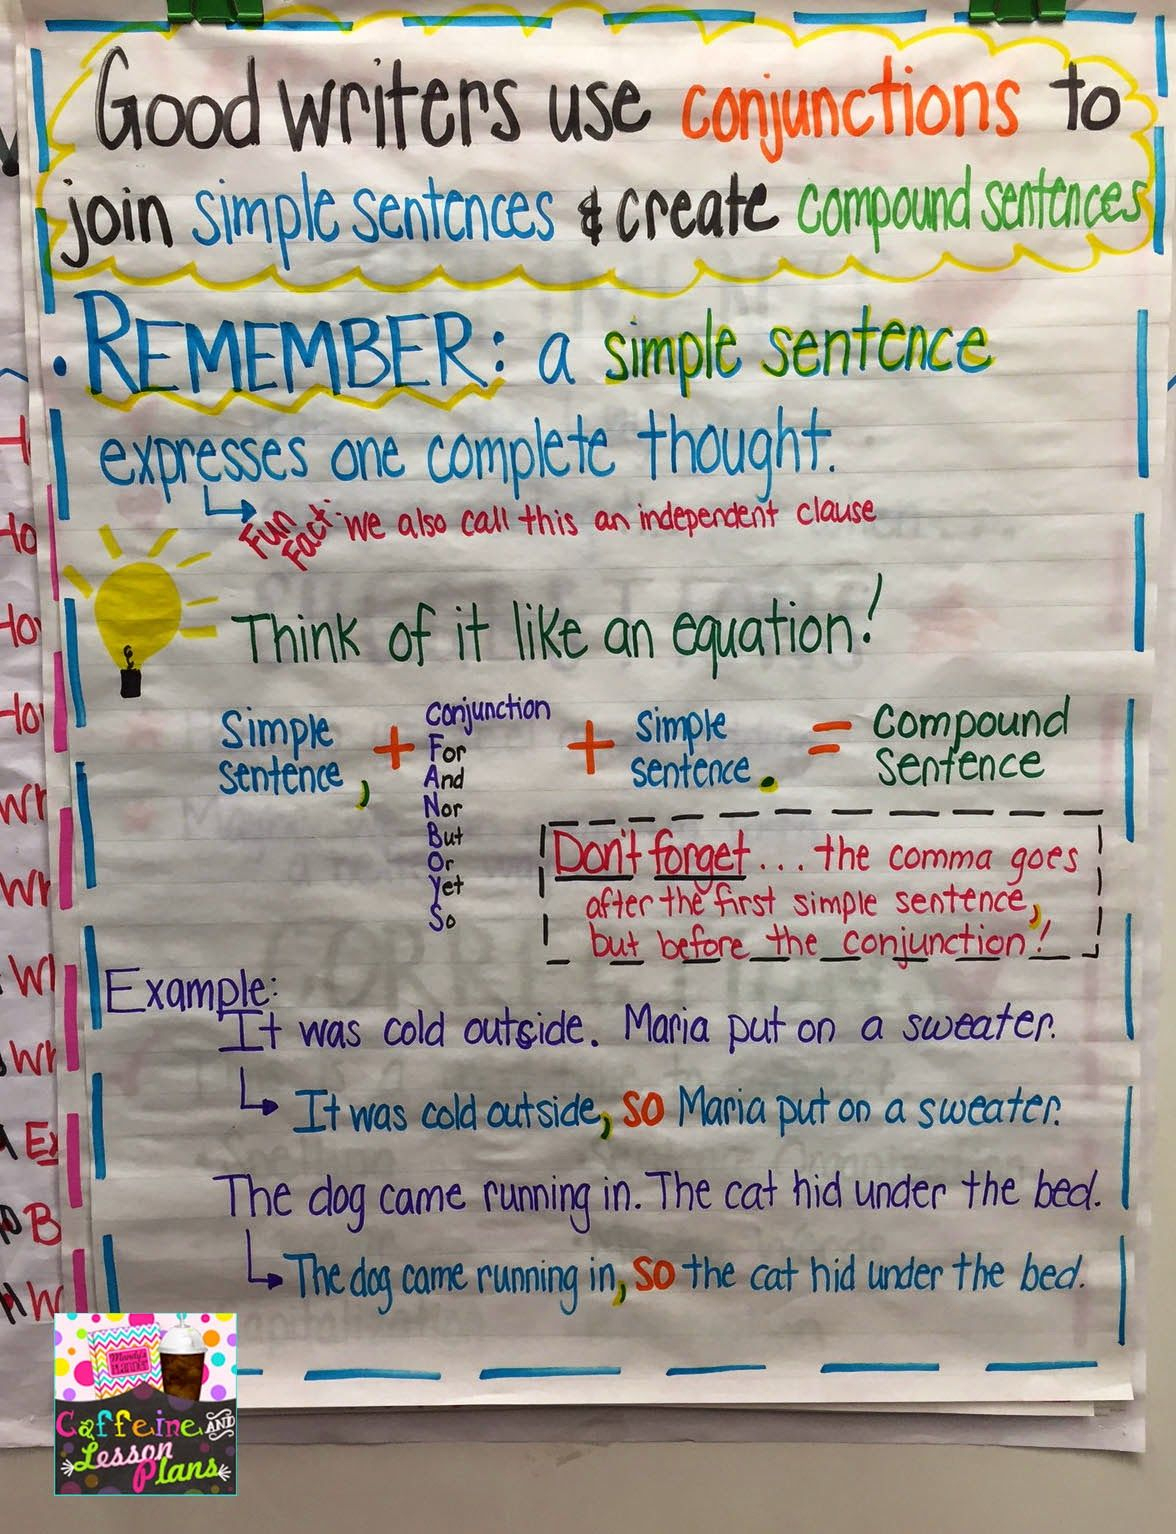 Good writers use conjunctions to
join simple sentences & create compound sentences
• REMEMBER: a simple sentence
expresses one complete thought.
Fun Fact: We also call this an independent clause
Think of it like an equation!
Simple sentence, + Conjunction + Simple sentence. = Compound Sentence
For
And
Nor
But
Or
Yet
So
Don't forget... the comma goes
after the first simple sentence,
but before the conjunction!
Example:
It was cold outside. Maria put on a sweater.
It was cold outside, so Maria put on a sweater.
The dog came running in. The cat hid under the bed.
The dog came running in, so the cat hid under the bed.
Mandy's
Planner
Caffeine AND
Lesson
Plans